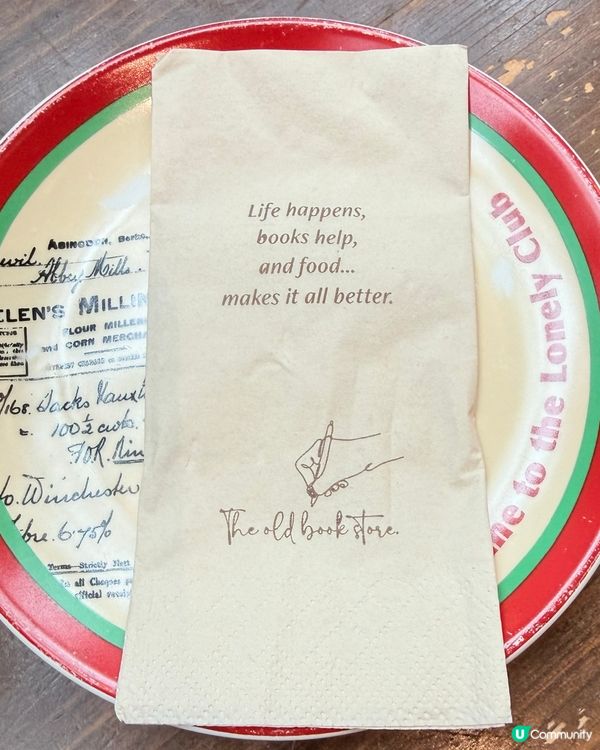 Life happens,
books help,
and food...
makes it all better.
The old book store.
ABINGDON, Berks.
Abbey Mills.
CLEN'S MILLIN
FLOUR MILLER
and CORN MERCHA
Sacks
100½ cwts.
FOR.
Winchester
6.75%
Terms Strictly Nett
all Cheques
official
me to the Lonely Club
U Community